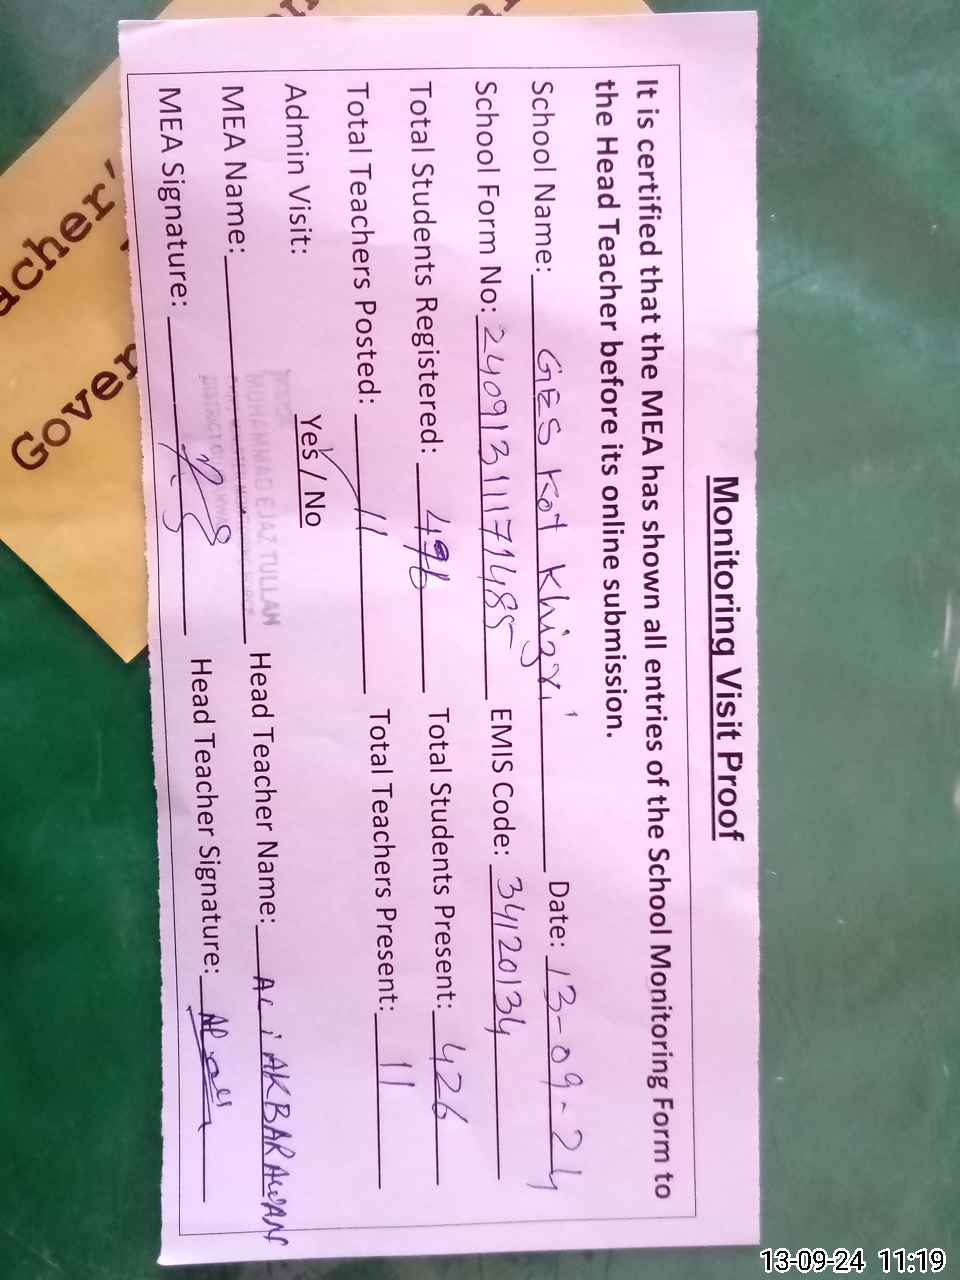 Monitoring Visit Proof
It is certified that the MEA has shown all entries of the School Monitoring Form to
the Head Teacher before its online submission.
School Name: GES Kot Khizri Date: 13-09-24
School Form No: 24091311171485 EMIS Code: 34120134
Total Students Registered: 496 Total Students Present: 426
Total Teachers Posted: 11 Total Teachers Present: 11
Admin Visit: Yes / No
MUHAMMAD EJAZ TULLAH
MEA Name: Head Teacher Name: ALi AKBAR AWAN
MEA Signature: Head Teacher Signature:
acher'
Gover
13-09-24 11:19